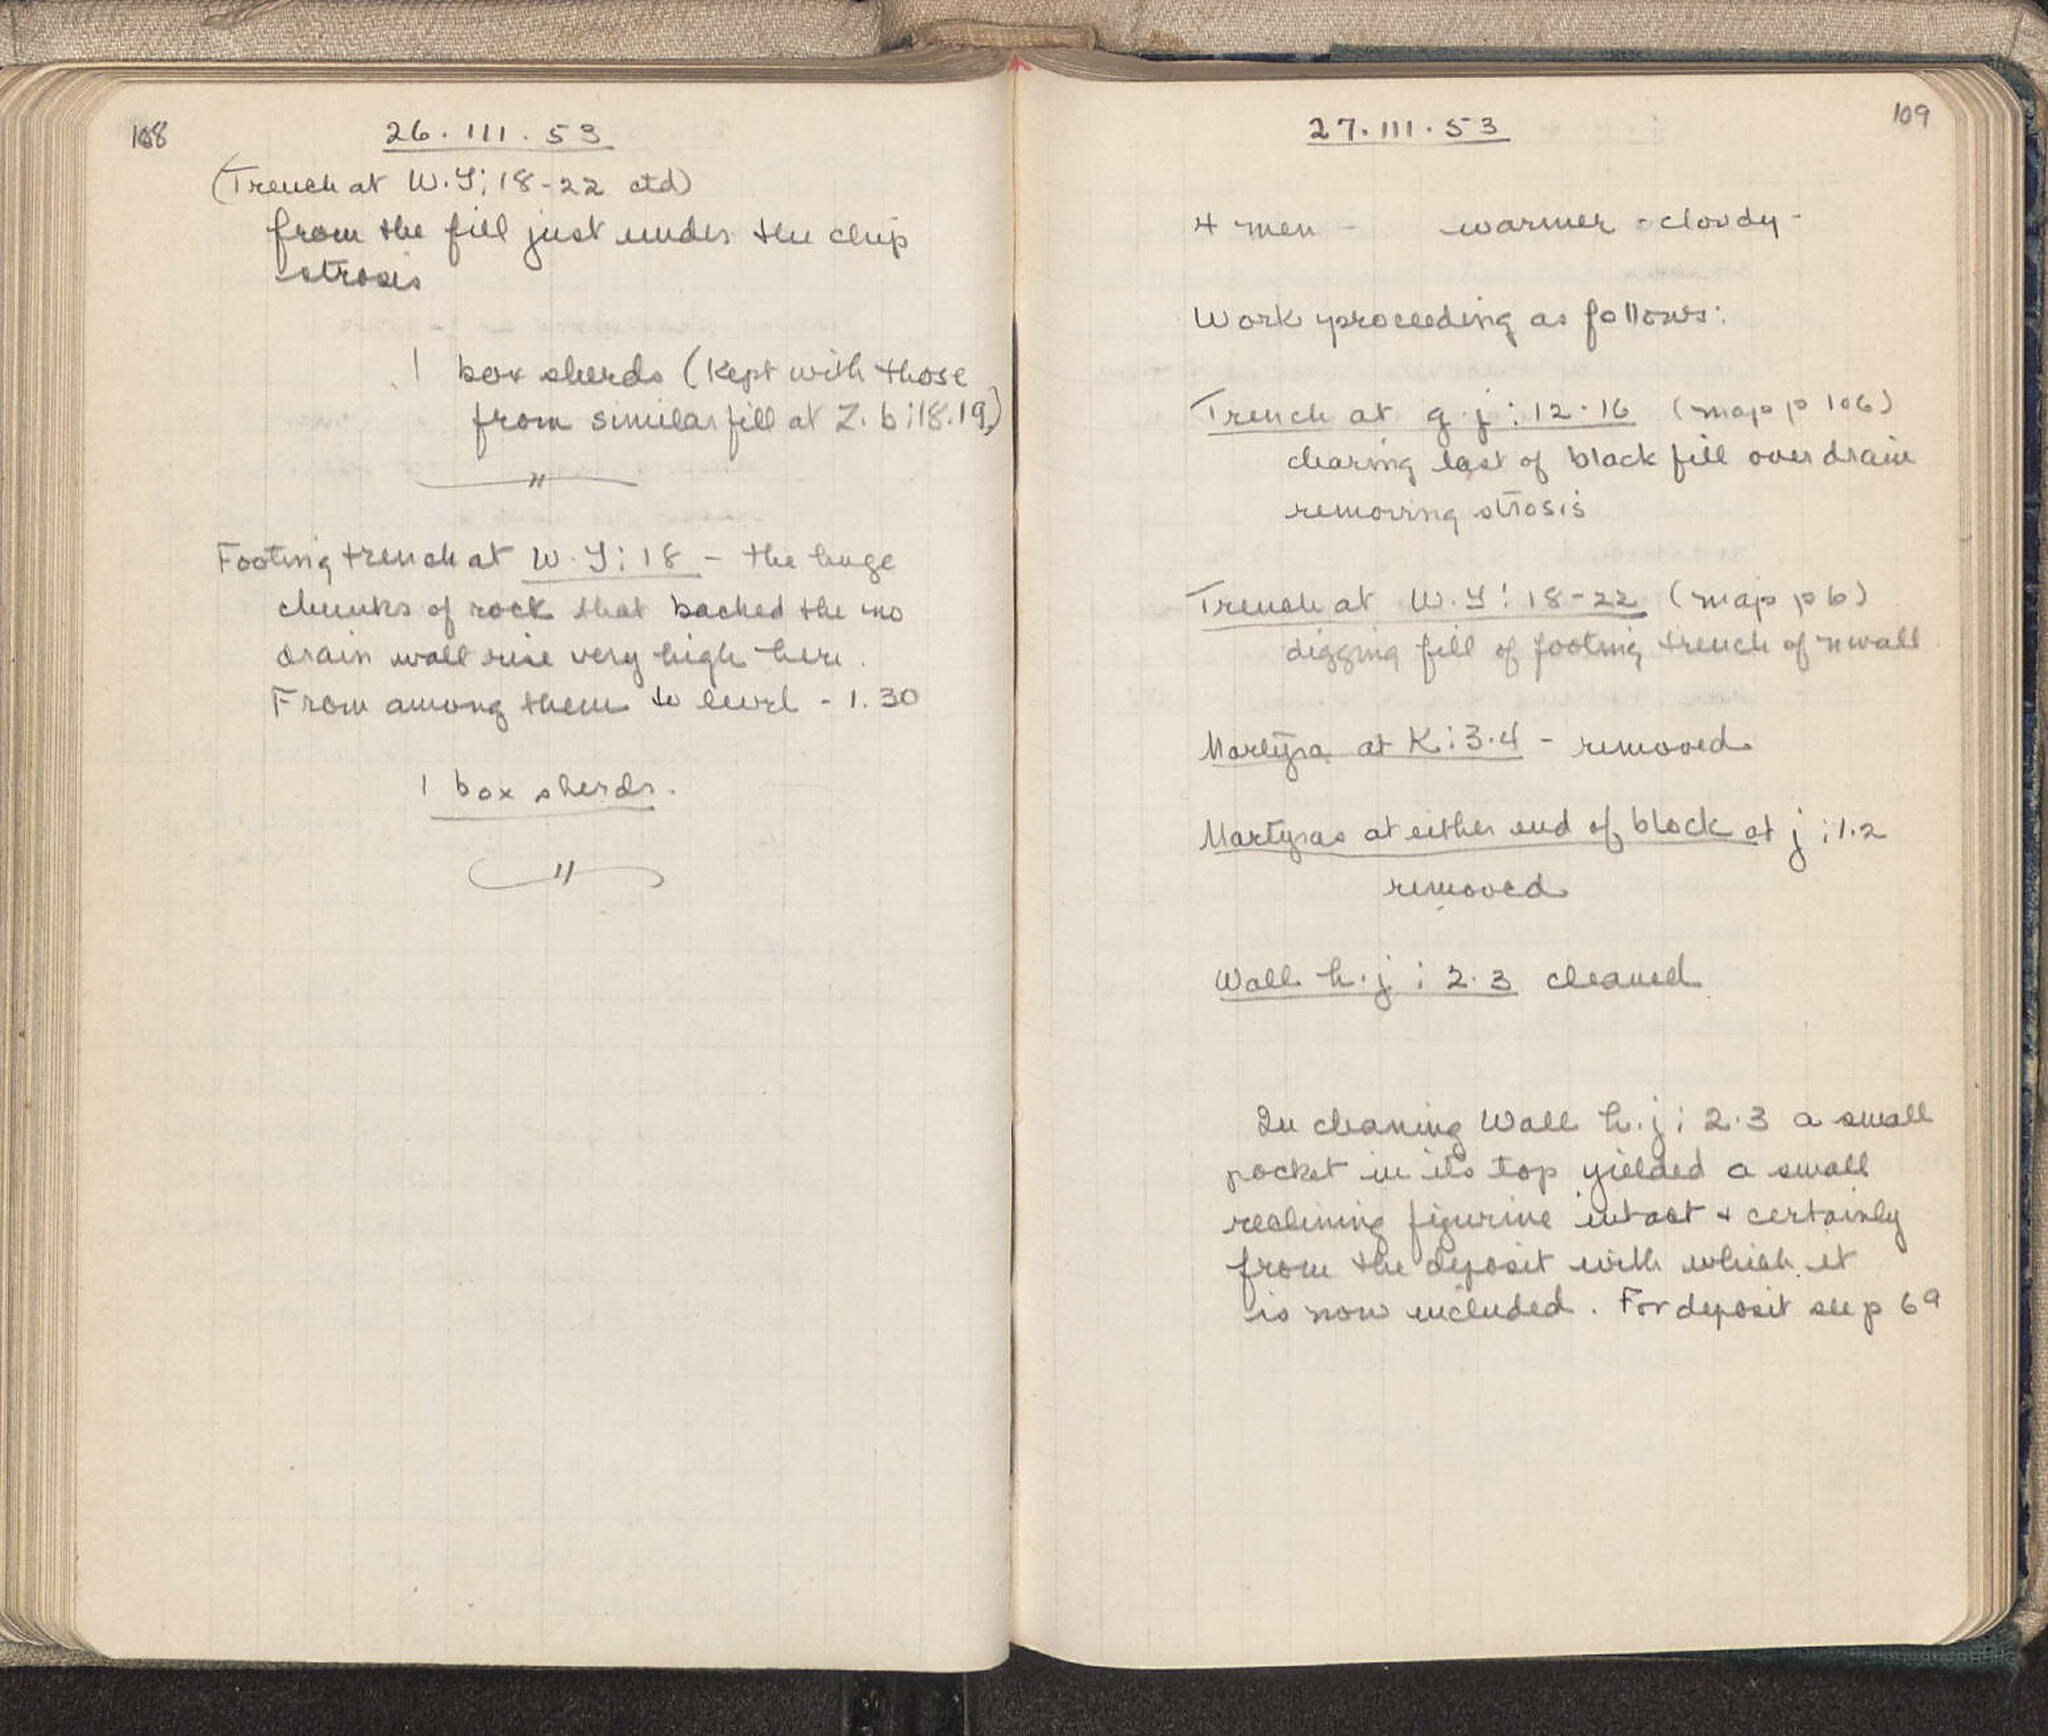 108
26 . III . 53
(Trench at W.Y; 18-22 ctd)
from the fill just under the chip
strosis
1 box sherds (Kept with those
from similar fill at Z. b ; 18.19)
"
Footing trench at W.Y; 18 - the huge
chunks of rock that backed the no
drain wall rise very high here.
From among them to level - 1.30
1 box sherds.
"
109
27. III . 53
4 men - warmer - cloudy -
Work proceeding as follows:
Trench at g.j : 12.16 (map p 106)
clearing last of black fill over drain
removing strosis
Trench at W.Y: 18-22 (map p 6)
digging fill of footing trench of n wall
Martyra at K: 3.4 - removed
Martyras at either end of block at j ; 1.2
removed
Wall h.j ; 2.3 cleaned
In cleaning Wall h.j ; 2.3 a small
pocket in its top yielded a small
reclining figurine intact + certainly
from the deposit with which it
is now included. For deposit see p 69